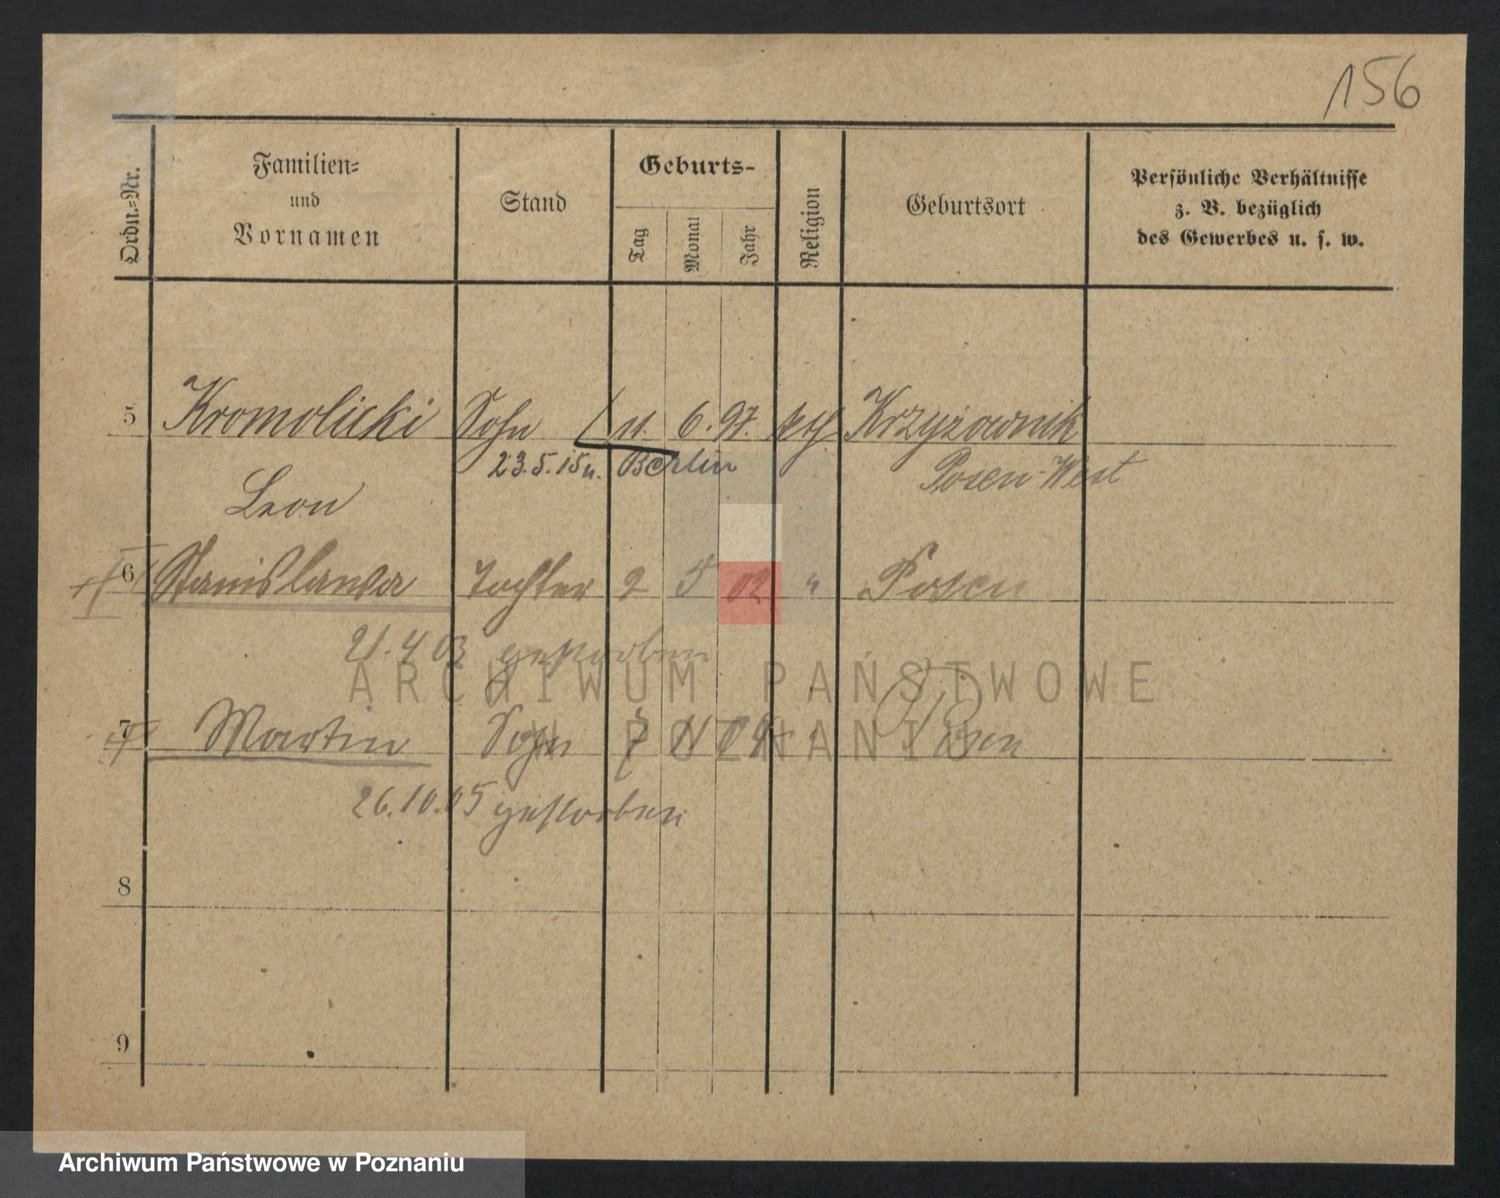 156
Ordn.-Nr.
Familien-
und
Vornamen
Stand
Geburts-
Tag
Monat
Jahr
Religion
Geburtsort
Persönliche Verhältnisse
z. B. bezüglich
des Gewerbes u. s. w.
5 Kromolicki Sohn 11. 6. 97. kth Krzyżownik
23.5.15 n. Berlin Posen-West
Leon
6 Stanislawa Tochter 2 5 02 " Posen
21.4 03 gestorben
ARCHIWUM PAŃSTWOWE
7 Martin Sohn 7 11 04 " Posen
W POZNANIU
26.10.05 gestorben
8
9
Archiwum Państwowe w Poznaniu